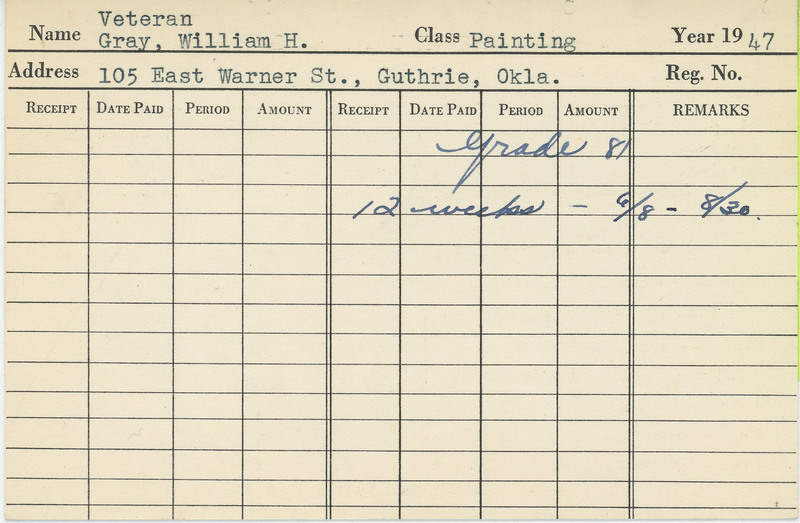 Veteran
Name Gray, William H. Class Painting Year 1947
Address 105 East Warner St., Guthrie, Okla. Reg. No.
RECEIPT DATE PAID PERIOD AMOUNT RECEIPT DATE PAID PERIOD AMOUNT REMARKS
Grade 81
12 weeks - 6/8 - 8/30.